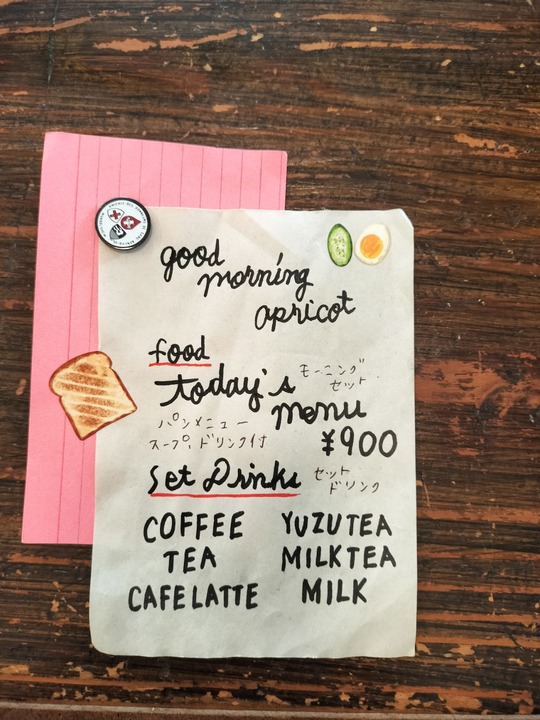 good
morning
apricot
food
モーニング
セット
today's
menu
パンメニュー
スープ、ドリンク付
¥900
Set Drinks
セット
ドリンク
COFFEE YUZUTEA
TEA MILKTEA
CAFELATTE MILK